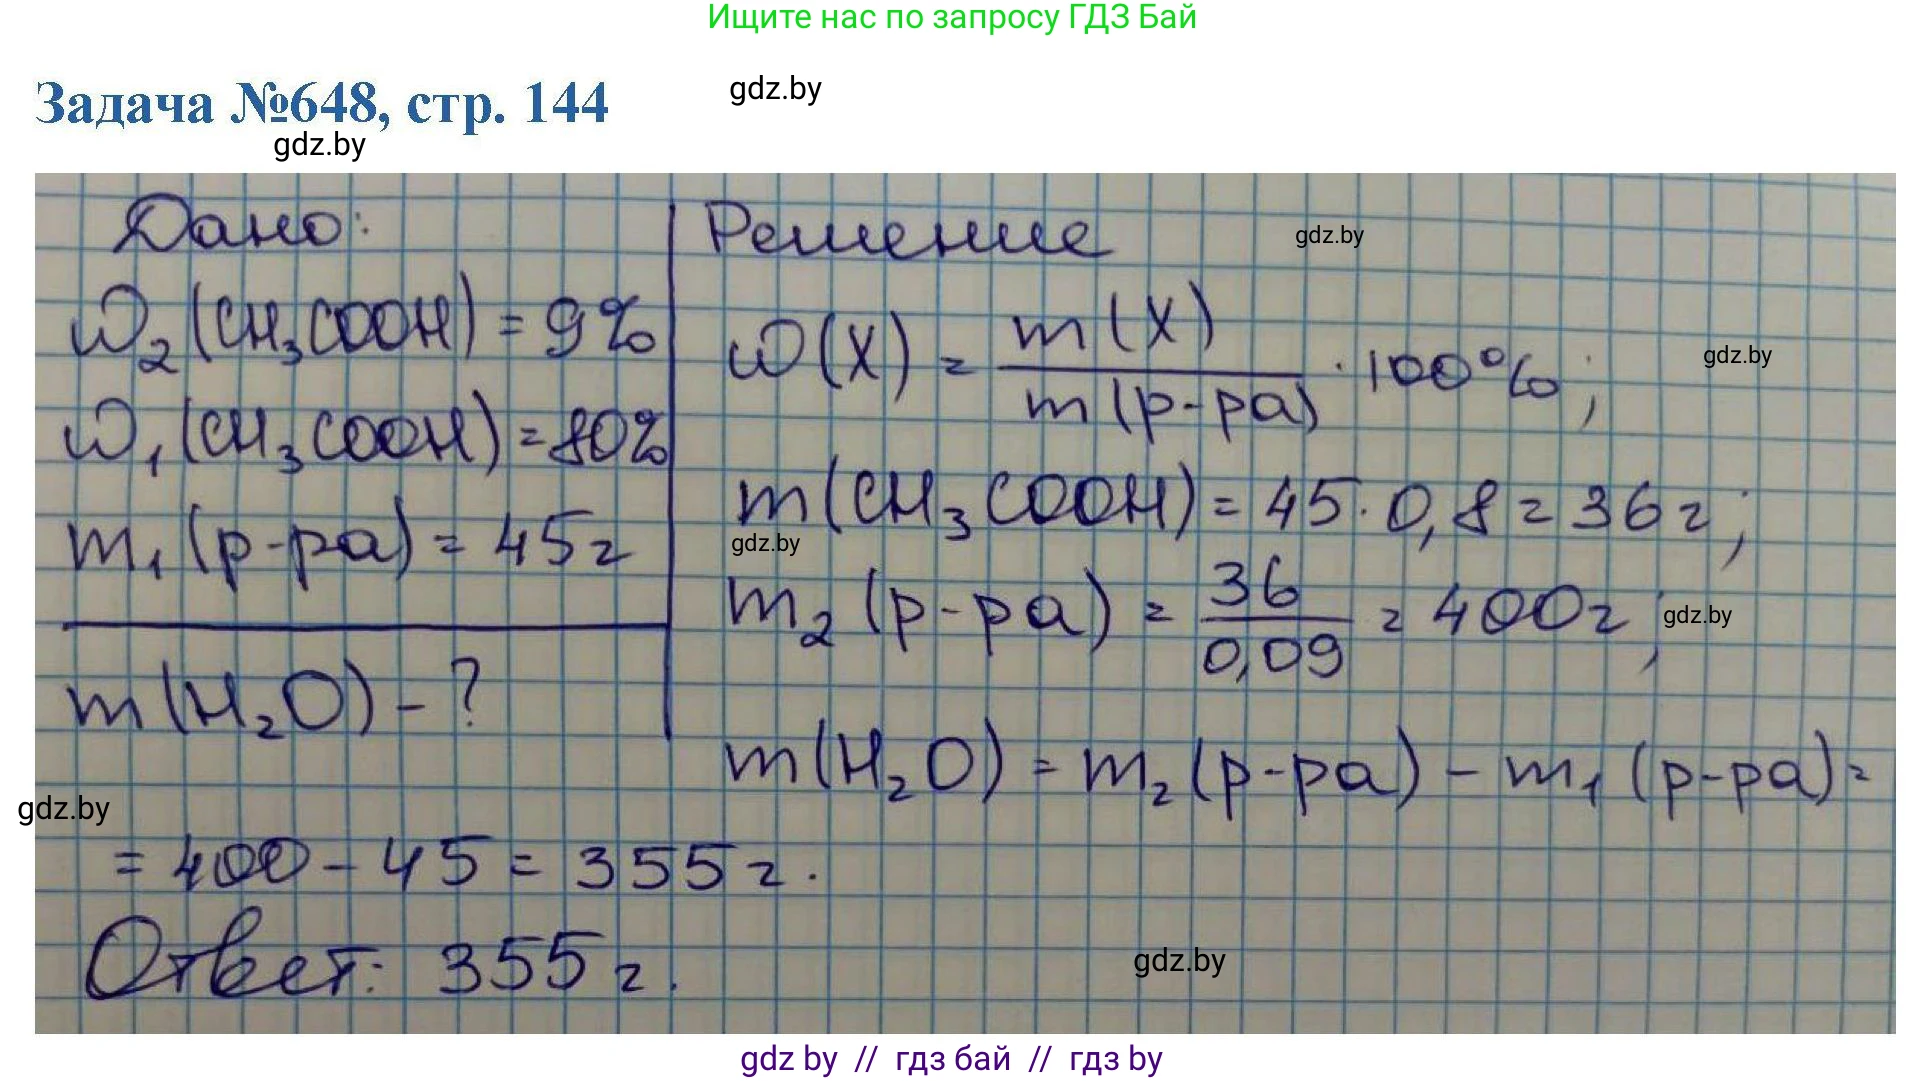 Ищите нас по запросу ГДЗ Бай
Задача №648, стр. 144
gdz.by
gdz.by
Дано:
ω₂(CH₃COOH) = 9%
ω₁(CH₃COOH) = 80%
m₁(р-ра) = 45г
m(H₂O) - ?
Решение
gdz.by
ω(X) = m(X) / m(р-ра) · 100%;
gdz.by
m(CH₃COOH) = 45 · 0,8 = 36г;
gdz.by
m₂(р-ра) = 36 / 0,09 = 400г;
gdz.by
m(H₂O) = m₂(р-ра) - m₁(р-ра) =
gdz.by
= 400 - 45 = 355г.
Ответ: 355г.
gdz.by
gdz by // гдз бай // гдз by